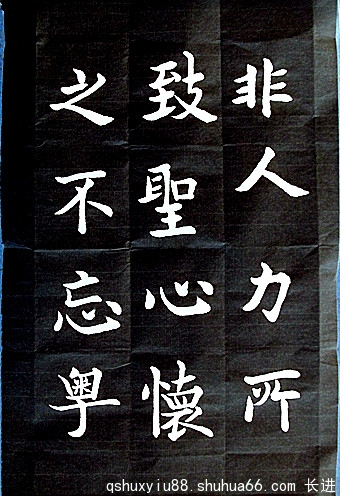 非人力所
致聖心懷
之不忘粤
qshuxyiu88.shuhua66.com 长进